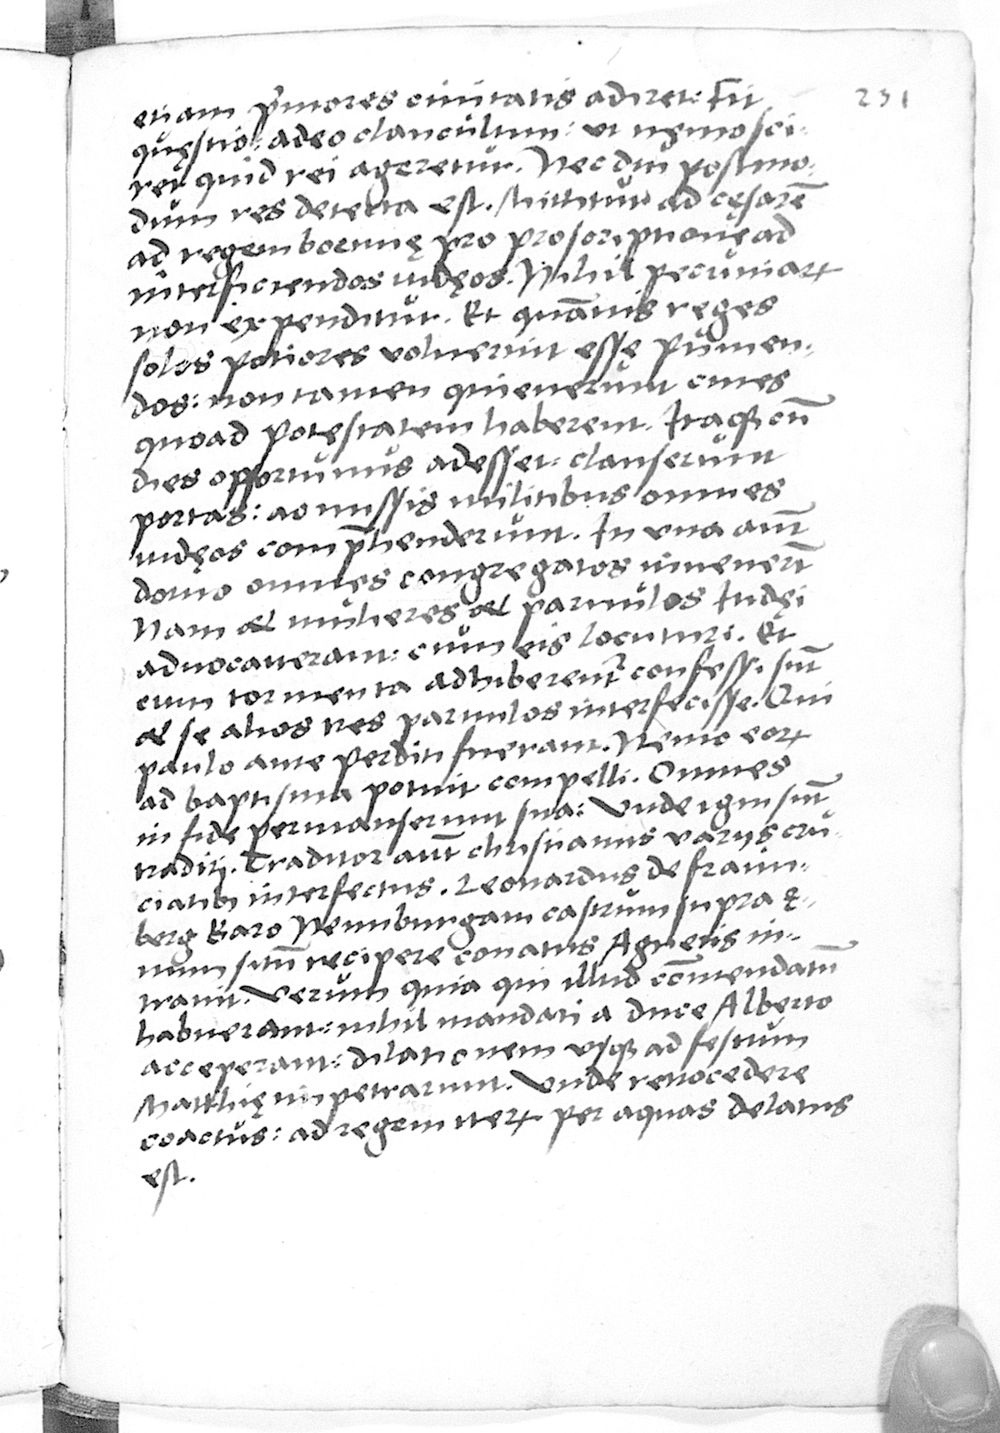 231
etiam p̄mores ciuitatis adiret: Fit
quęstio: adeo clanculum: vt nęmo sci-
ret quid rei ageretur. Nec diu postmo-
dum res detecta est. Mittitur ad cęsarē
ad regem boemię pro proscriptionę ad
interficiendos iudęos. Nihil pecuniaꝝ
non expenditur. Et quāuis reges
solos potiores voluerint esse punien-
dos: non tamen quieuerunt ciues
quoad potestatem haberent. Itaqꝫ cū
dies opportunus adesset: clauserunt
portas: ac missis militibus omnes
iudęos comp̄henderunt. In vna aūt
domo omnes congregatos inuenerūt
Nam & mulieres & paruulos Iudęi
aduocauerant: cum eis locuturi. Et
cum tormenta adhiberent᷑ confessi sūt
& se alios tres paruulos interfecisse. Qui
paulo ante perditi fuerant. Nemo eoꝝ
ad baptisma potuit compelli. Omnes
in fide permanserunt sua: Vnde igni sūt
traditi. Traditor aūt christianus varijs cru-
ciatibus interfectus. Leonardus de Fraun-
berg Karo Neunburgam castrum supra &-
num sitū recipere conatus Agnetis in-
trauit. Verum quia qui illud cōmendatū
habuerant: nihil mandati a duce Alberto
acceperant: dilationem vsqꝫ ad festum
Matthię impetrarunt. Vnde retrocedere
coactus: ad regem iteꝝ per aquas delatus
est.